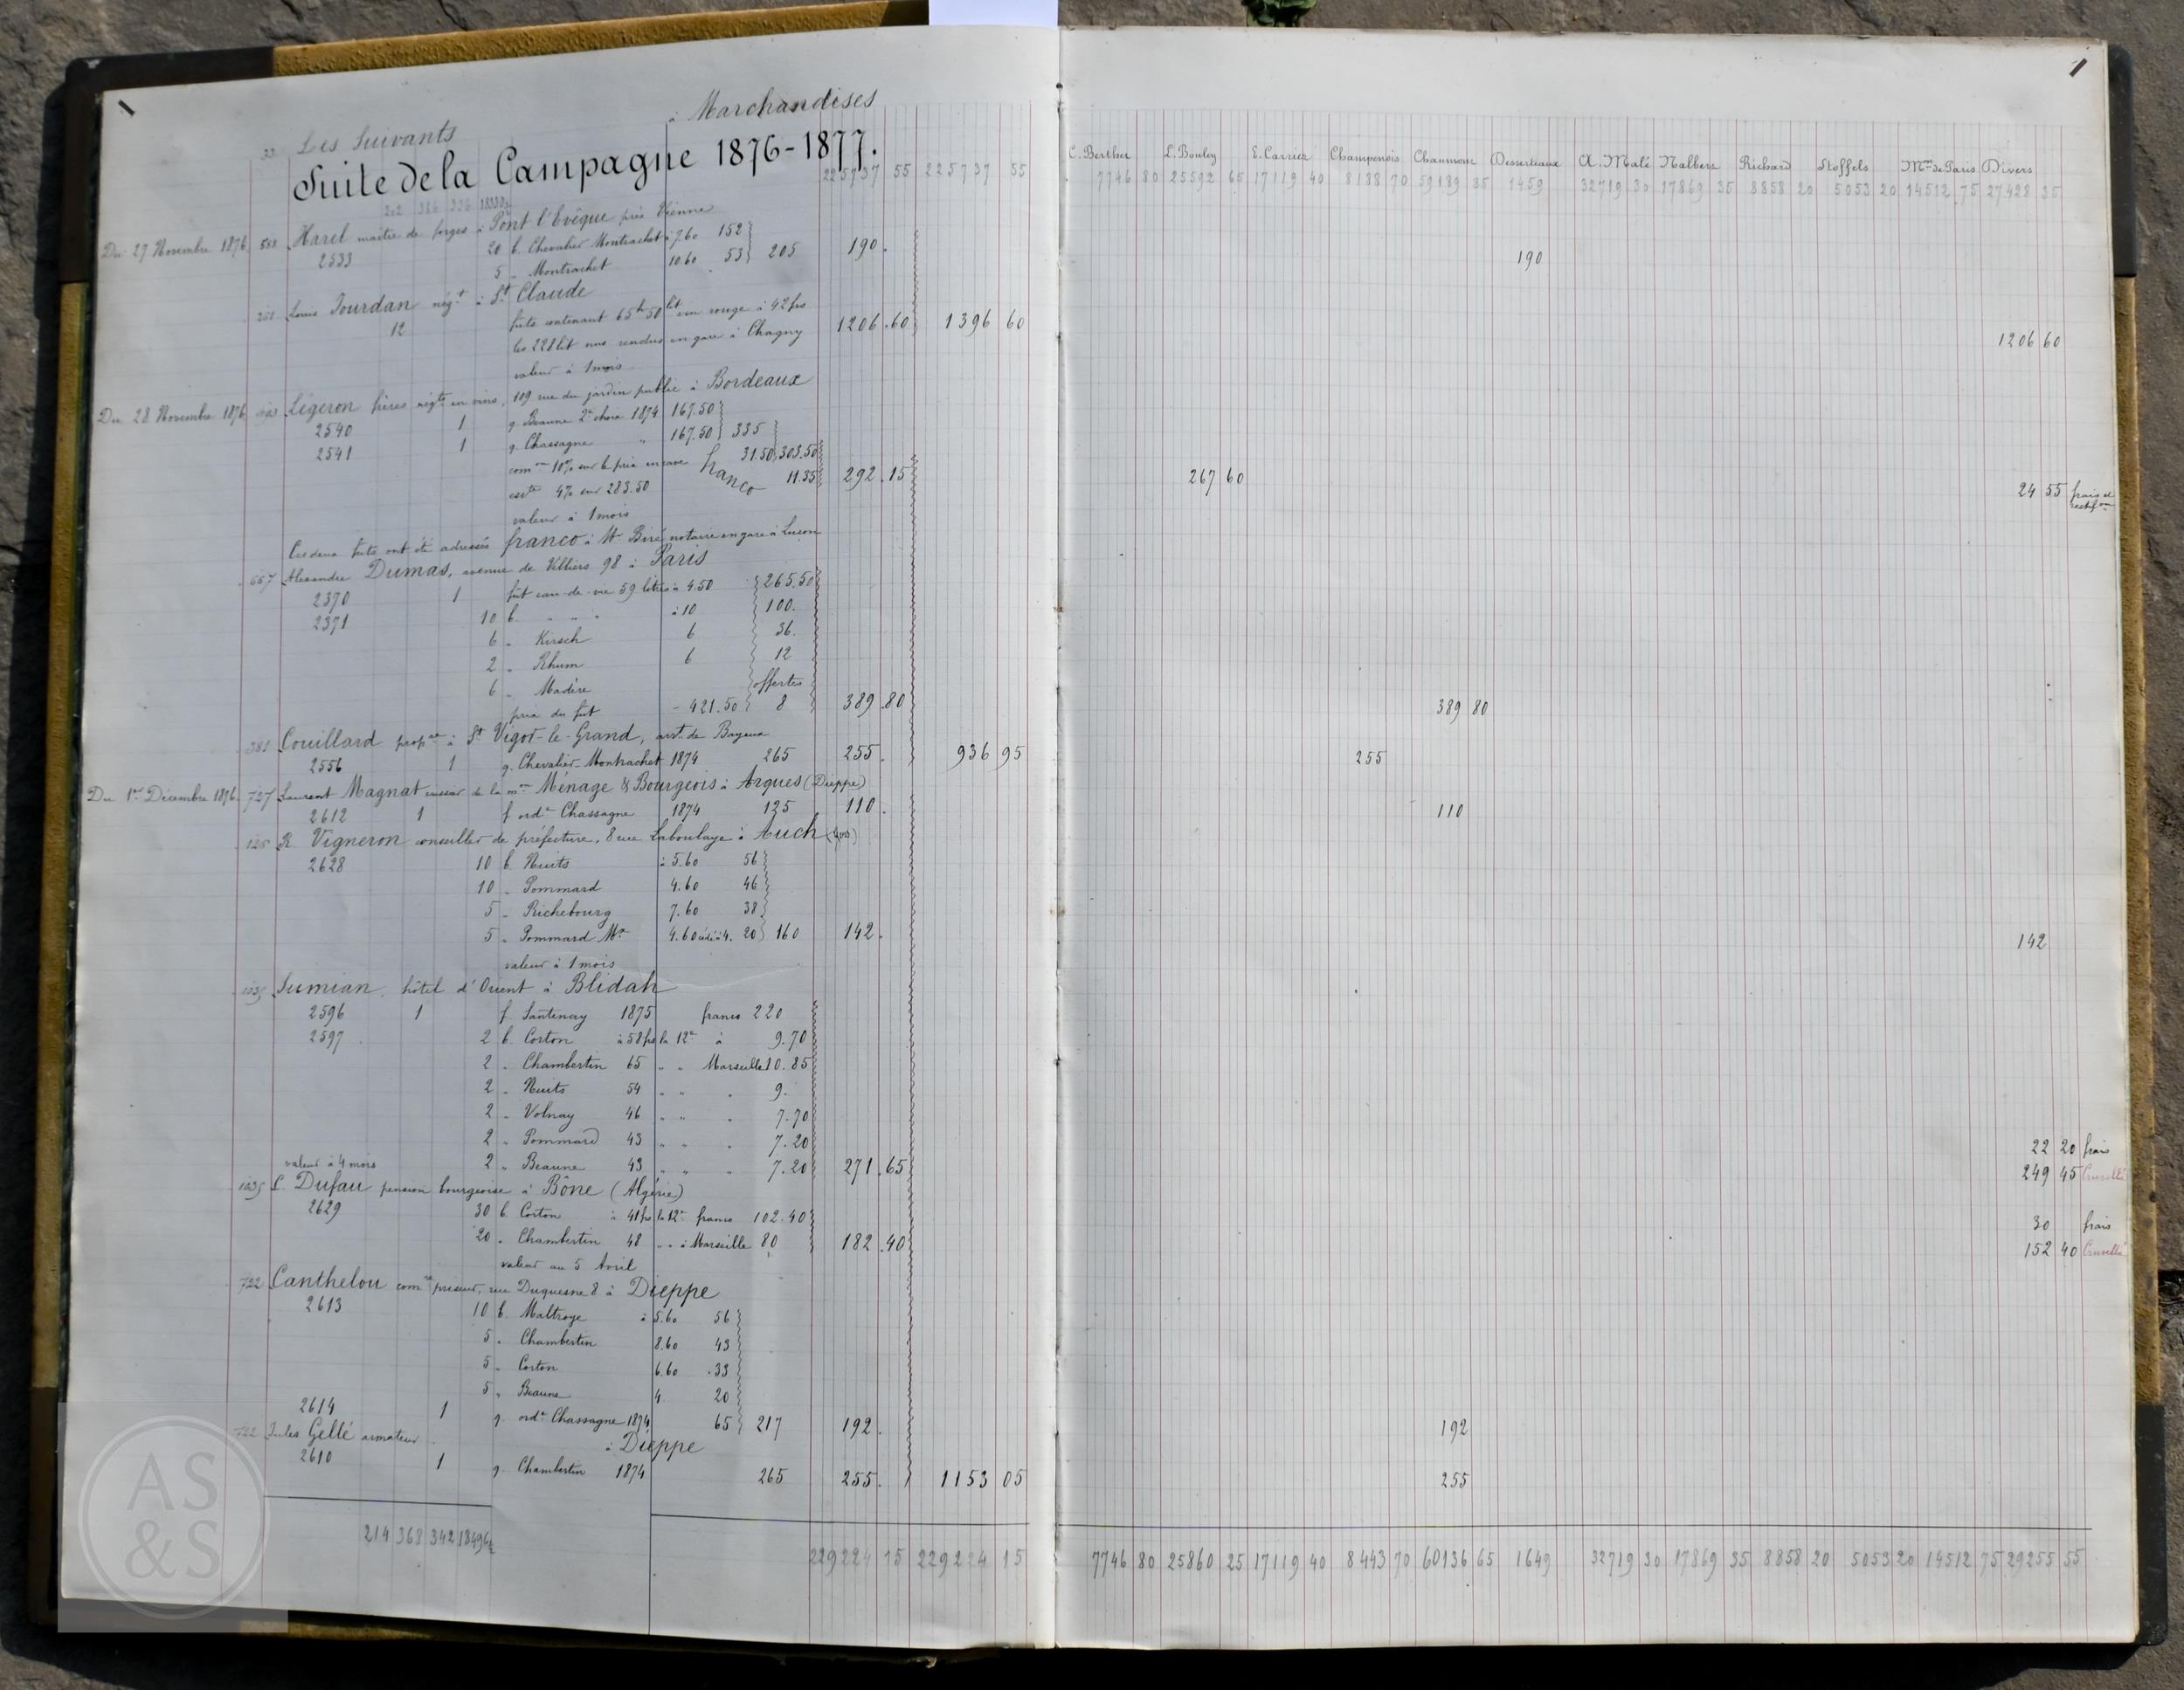 Les Suivants à Marchandises
Suite de la Campagne 1876-1877.
225737 55 225737 55
Du 27 Novembre 1876 Harel maître de forges à Pont l'Evêque près Vienne
2533 20 b. Chevalier Montrachet à 7.60 152
5 " Montrachet 10.60 53 205 190.
Louis Jourdan négt à St Claude
12 futs contenant 65h50lit vin rouge à 42frs
les 228lit nus rendus en gare à Chagny 1206.60 1396 60
valeur à 1 mois
Du 28 Novembre 1876 Légeron frères négts en vins, 109 rue du jardin public à Bordeaux
2540 1 q. Beaune 2e choix 1874 167.50
2541 1 q. Chassagne " 167.50 335
comon 10% sur le prix en cave franco 31.50 303.50
escte 4% sur 283.50 11.35 292.15
valeur à 1 mois
Ces deux futs ont été adressés franco à Mr Biré notaire en gare à Luçon
667 Alexandre Dumas, avenue de Villiers 98 à Paris
2370 1 fût eau-de-vie 59 litres à 4.50 265.50
2371 10 b. " " " à 10 100.
6 " Kirsch 6 36.
2 " Rhum 6 12
6 " Madère offertes
prix du fut - 421.50 8 389.80
381 Couillard propre à St Vigor-le-Grand, arrt de Bayeux
2556 1 q. Chevalier-Montrachet 1874 265 255. 936 95
Du 1er Décembre 1876 727 Laurent Magnat caissier de la mon Ménage & Bourgeois à Arques (Dieppe)
2612 1 f ordre Chassagne 1874 125 110.
R. Vigneron conseiller de préfecture, 8 rue Laboulaye à Auch
2628 10 b. Nuits à 5.60 56
10 " Pommard 4.60 46
5 " Richebourg 7.60 38
5 " Pommard 4.60 cédé à 4. 20 160 142.
valeur à 1 mois
Sumian, hôtel d'Orient à Blidah
2596 1 f Santenay 1875 franco 220
2597 2 b. Corton à 58frs la 12e à 9.70
2 " Chambertin 65 " " Marseille 10.85
2 " Nuits 54 " " " 9.
2 " Volnay 46 " " " 7.70
2 " Pommard 43 " " " 7.20
valeur à 4 mois 2 " Beaune 43 " " " 7.20 271.65
1035 C. Dufau pension bourgeoise à Bône (Algérie)
2629 30 b Corton à 41frs la 12e franco 102.40
20 " Chambertin 48 " " à Marseille 80 182.40
valeur au 5 Avril
722 Canthelou comre priseur, rue Duquesne 8 à Dieppe
2613 10 b. Maltroye à 5.60 56
5 " Chambertin 8.60 43
5 " Corton 6.60 33
5 " Beaune 4 20
2614 1 q. ordre Chassagne 1874 65 217 192.
722 Jules Gellé armateur à Dieppe
2610 1 q. Chambertin 1874 265 255. 1153 05
214 368 342
229224 15 229224 15
AS
&S
C. Berther L. Bouley E. Carrier Champenois Chaumon Desserteaux A. Malé Nalbert Richard Stoffels Mon de Paris Divers
7746 80 25592 65 17119 40 8188 70 59189 85 1459 32719 30 17869 35 8858 20 5053 20 14512 75 27428 35
190
1206 60
267 60 24 55 frais et
389 80
255
110
142
22 20 frais
249 45
30 frais
152 40
192
255
7746 80 25860 25 17119 40 8443 70 60136 65 1649 32719 30 17869 35 8858 20 5053 20 14512 75 29255 55